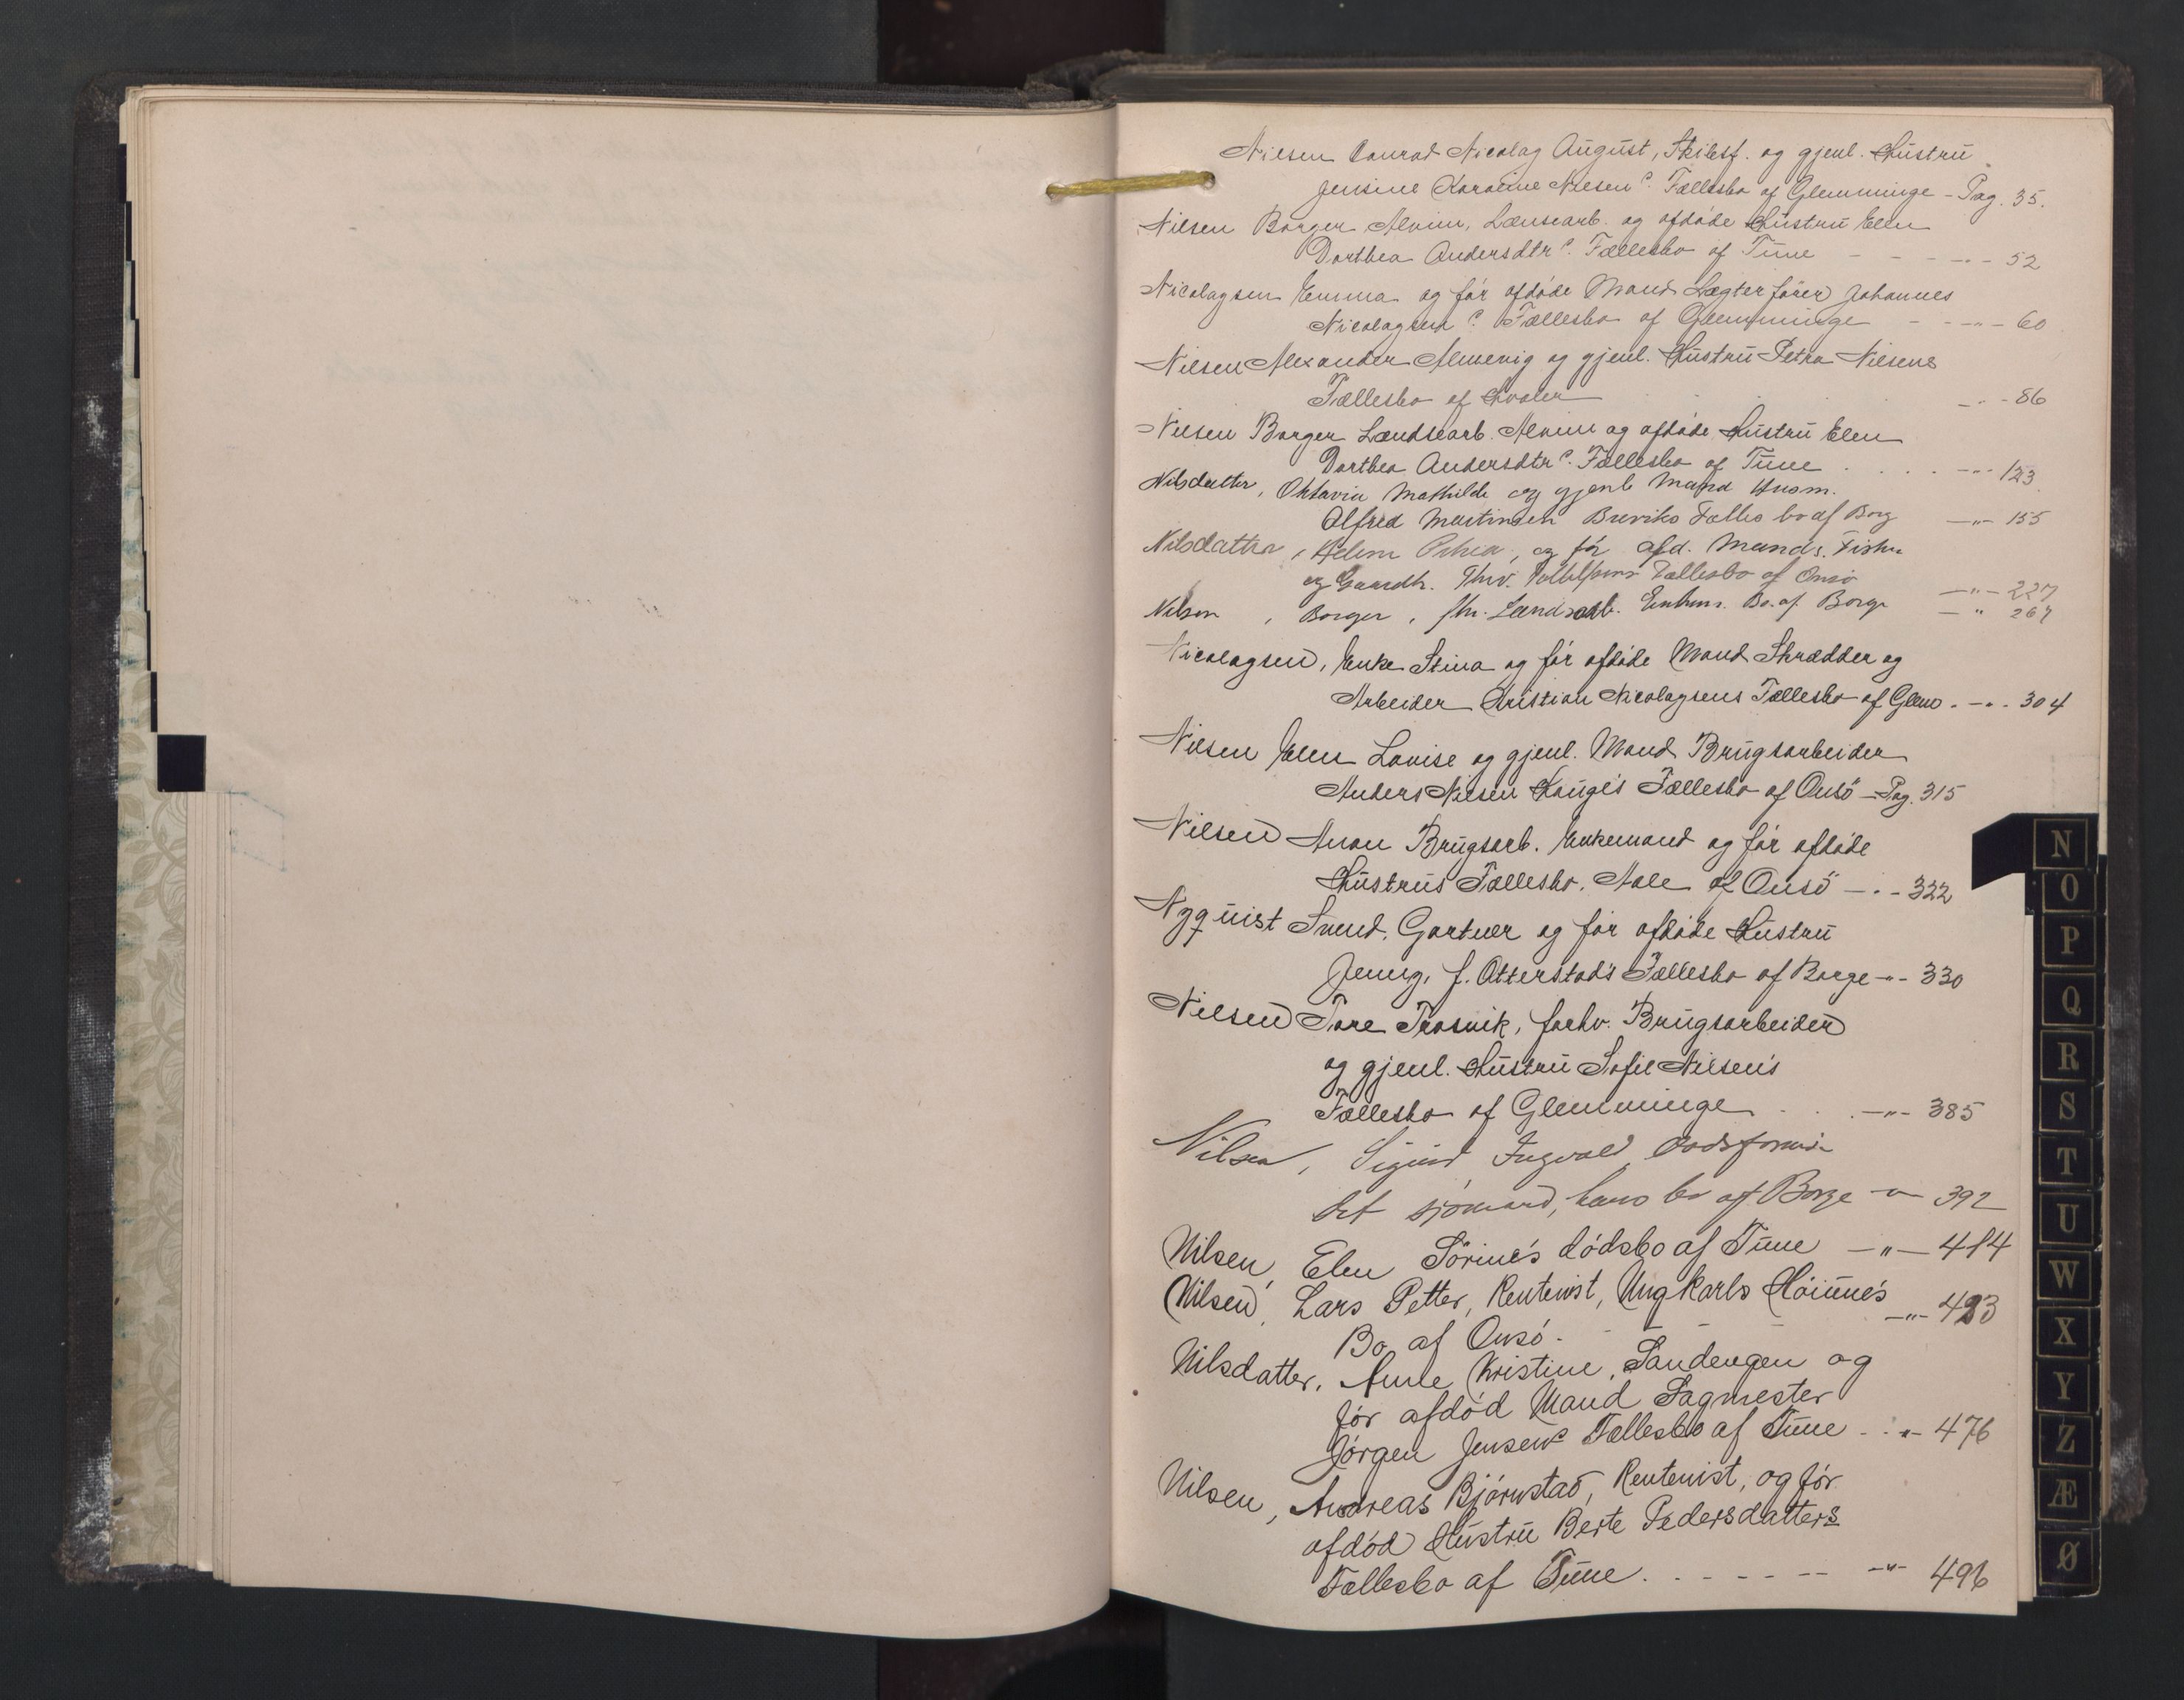 Nilsen Conrad Nicolay August, Skibsf. og gjenl. Hustru
Jensine Karoline Nilsens Fællesbo af Glemminge - Pag. 35.
Nilsen Borger Alvim, Lænsearb. og afdöde Hustru Elen
Dorthea Andersdtrs. Fællesbo af Tune - - - -"- 52
Nicolaysen Emma og för afdöde Mand Lægterförer Johannes
Nicolaysens Fællesbo af Glemminge - -"- 60
Nilsen Alexander Almevig og gjenl. Hustru Petra Nilsens
Fællesbo af Hvaler -"- 86
Nilsen Borger Lændsearb. Alvim og afdöde Hustru Elen
Dorthea Andersdtrs. Fællesbo af Tune . . . . -"- 123
Nilsdatter, Oktavia Mathilde og gjenl Mand Husm.
Alfred Martinsen Breviks Fælles bo af Borg -"- 155
Nilsdatter, Helene og för afd. Mands. Fisker
og Gaardbr. Fællesbo af Onsö -"- 227
Nilsen, Borger, fhv. Lændsearb. Enkem. Bo. af. Borge -"- 267
Nicolaysen, Enke Stina og för afdöde Mand Skrædder og
Arbeider Kristian Nicolaysens Fællesbo af Glem. -"- 304
Nilsen Elen Lovise og gjenl. Mand Brugsarbeider
Anders Nilsen Hauges Fællesbo af Onsö - Pag. 315
Nilsen Anon Brugsarb. Enkemand og för afdöde
Hustrus Fællesbo. Aale af Onsö -"- 322
Nyquist Svend. Gartner og för afdöde Hustru
Jenny, f. Otterstad's Fællesbo af Borge -"- 330
Nilsen Tore Trosvik, forhv. Brugsarbeider
og gjenl. Hustru Sofie Nilsen's
Fællesbo af Glemminge . . . -"- 385
Nilsen, Sigurd Ingvald dödsformo-
det sjömand, hans bo af Borge -"- 392
Nilsen, Elen Sörine's dödsbo af Tune -"- 414
Nilsen, Lars Petter, Rentenist, Ungkarls Höiune's
Bo af Onsö. - - - -"- 423
Nilsdatter, Anne Kristine, Sandengen og
för afdöd Mand Sagmester
Jörgen Jensens Fællesbo af Tune . . -"- 476
Nilsen, Andreas Björnstad, Rentenist, og för
afdöd Hustru Berte Pedersdatters
Fællesbo af Tune. - - - - -"- 496
N
O
P
Q
R
S
T
U
W
X
Y
Z
Æ
Ø